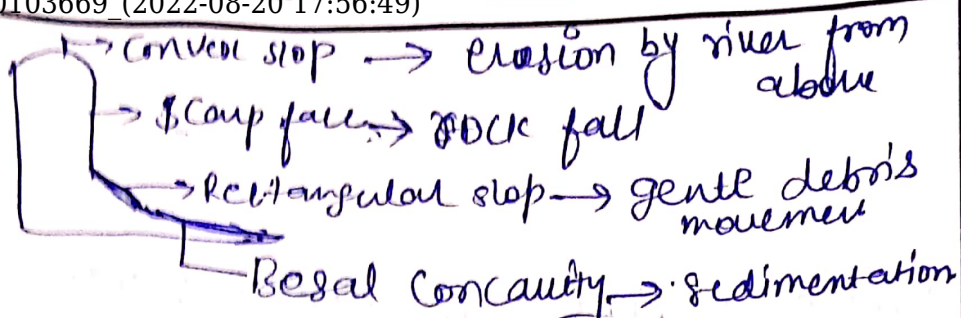 0103669_(2022-08-20 17:56:49)
convex slop → erosion by river from above
Scarp face → rock fall
Rectangular slop → gentle debris movement
Basal Concavity → sedimentation